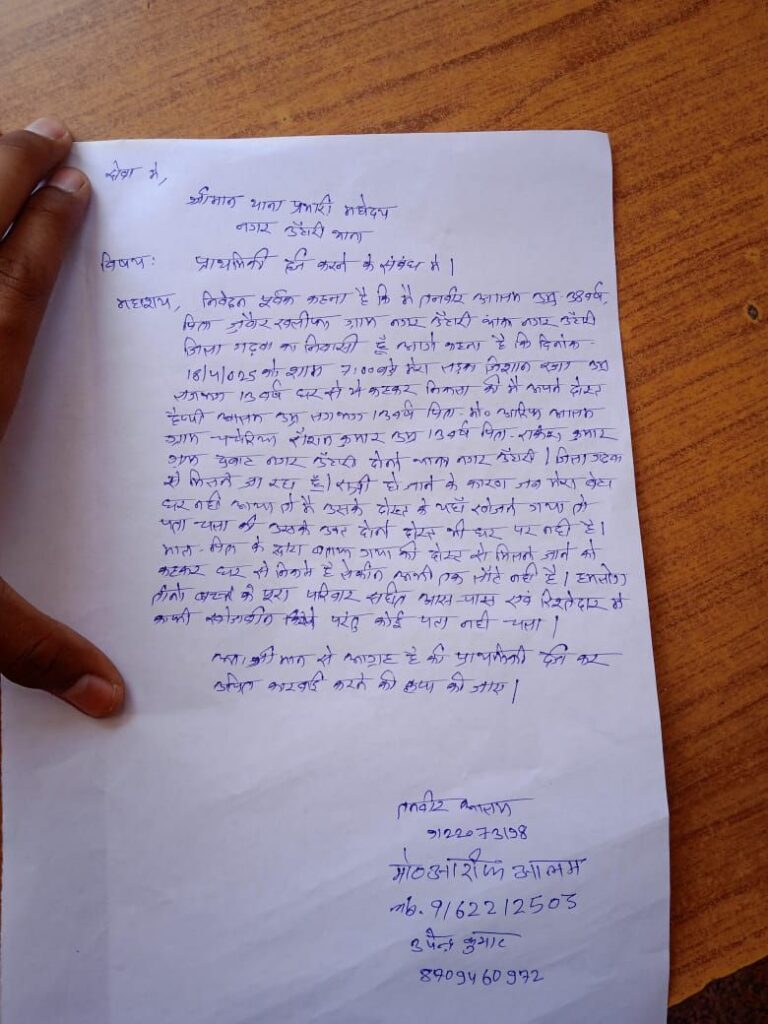 सेवा में,
श्रीमान थाना प्रभारी महोदय
नगर ऊँटारी थाना
विषय: प्राथमिकी दर्ज करने के संबंध में।
महाशय, निवेदन पूर्वक कहना है कि मैं तनवीर आलम उम्र 38 वर्ष,
पिता जुबैर खलीफा ग्राम नगर ऊँटारी थाना नगर ऊँटारी
जिला गढ़वा का निवासी हूँ आगे कहना है कि दिनांक-
18/4/025 को शाम 7:00 बजे मेरा लड़का जिशान उम्र
लगभग 13 वर्ष घर से ये कहकर निकला की मै अपने दोस्त
हैप्पी आलम उम्र लगभग 13 वर्ष पिता-मो० आरिफ आलम
ग्राम रौशन कुमार उम्र 13 वर्ष पिता- कुमार
ग्राम नगर ऊँटारी दोनो थाना नगर ऊँटारी। जिला गढ़वा
से मिलने जा रहा हूँ। रात्री हो जाने के कारण जब मेरा बेटा
घर नही आया तो मै उसके दोस्त के यहाँ खोजने गया तो
पता चला की उसके उक्त दोनो दोस्त भी घर पर नही है।
माता-पिता के द्वारा बताया गया की दोस्त से मिलने जाने को
कहकर घर से निकले है लेकीन अभी तक लौटे नही है। हमलोग
तीनो बच्चे के पूरा परिवार सहीत आस-पास एवं रिश्तेदार मे
काफी खोजबीन किये परंतु कोई पता नही चला।
अतः श्रीमान से आग्रह है की प्राथमिकी दर्ज कर
उचित कारवाई करने की कृपा की जाए।
तनवीर आलम
9122073198
मो० आरीफ आलम
mb. 9162212503
उपेन्द्र कुमार
8709460972